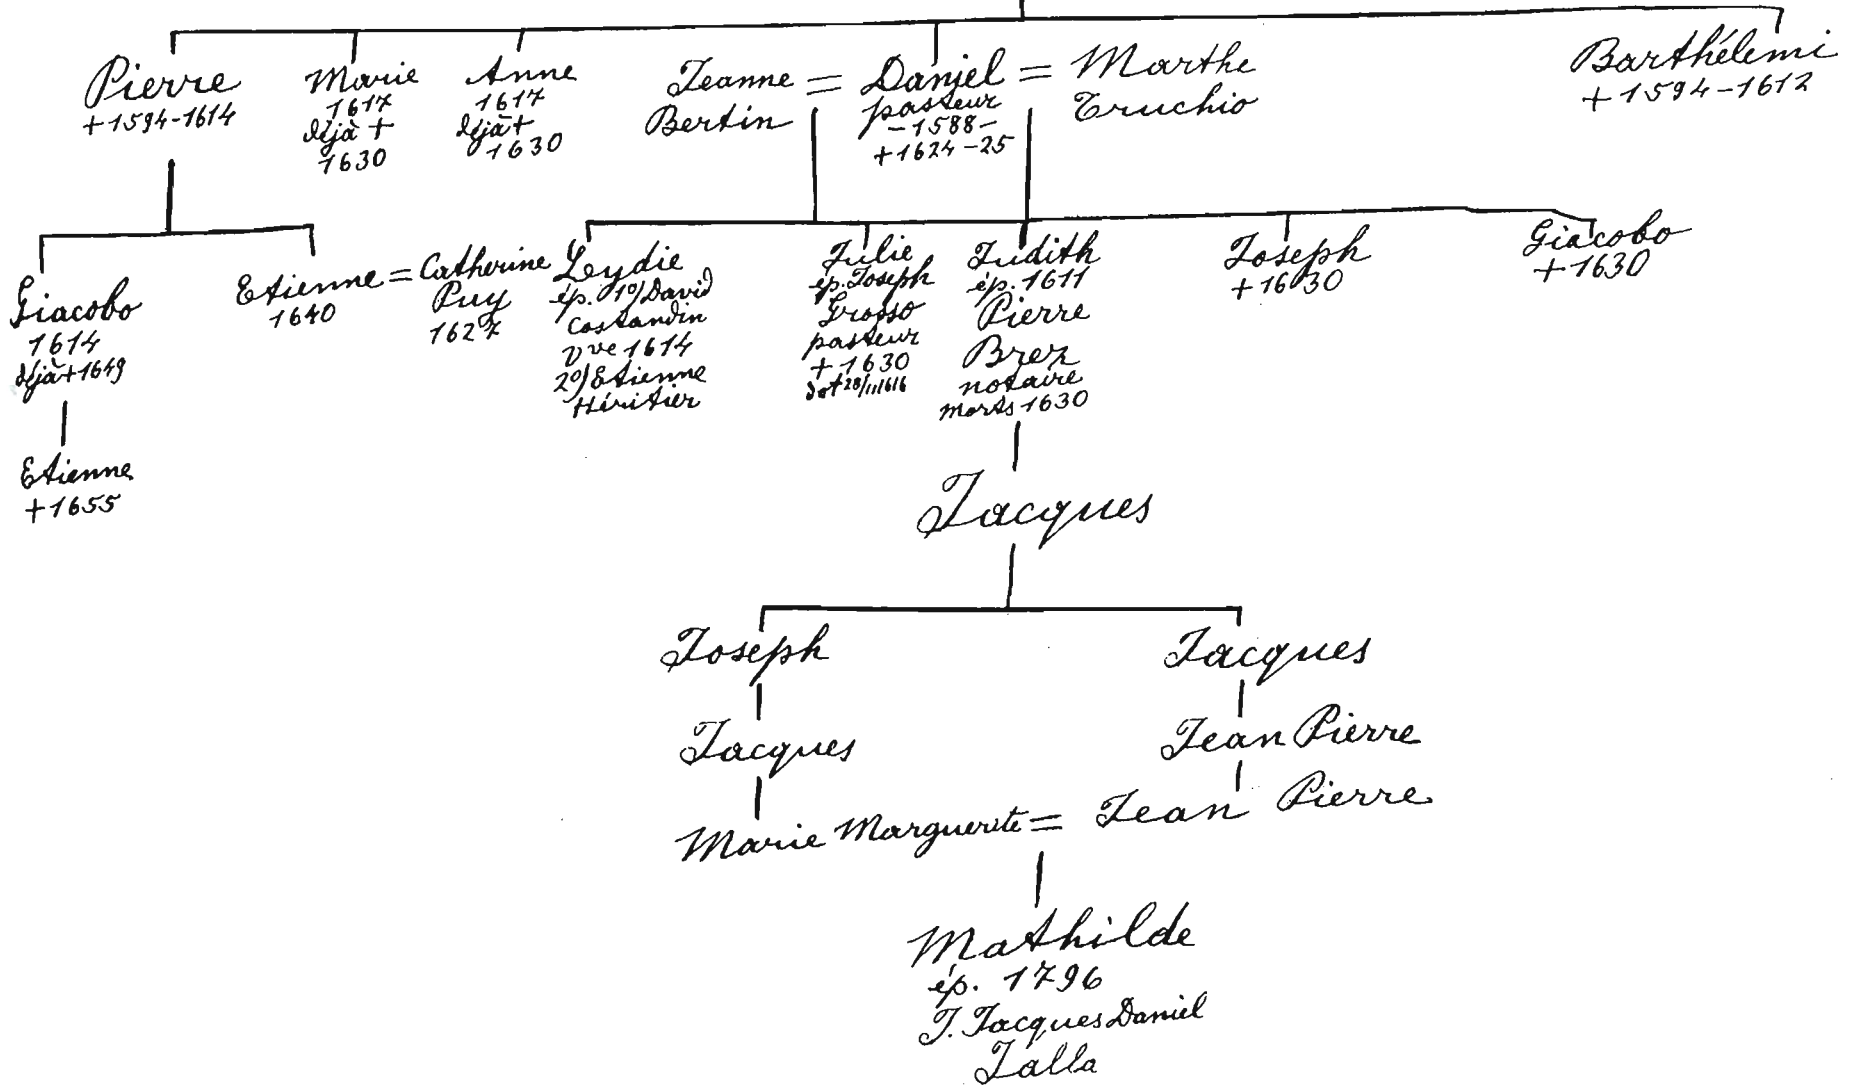 Pierre
+1594-1614
Marie
1617
déjà +
1630
Anne
1617
déjà +
1630
Jeanne
Bertin
=
Daniel
pasteur
-1588-
+1624-25
=
Marthe
Truchio
Barthélemi
+1594-1612
Giacobo
1614
déjà+1649
Etienne
+1655
Etienne =
1640
Catherine
Puy
1627
Leydie
ép. 1º/David
Costandin
vve 1614
2º/Etienne
Héritier
Julie
ép. Joseph
Grosso
pasteur
+1630
dot 28/11/1616
Judith
ép. 1611
Pierre
Brez
notaire
morts 1630
Joseph
+1630
Giacobo
+1630
Jacques
Joseph
Jacques
Jacques
Jean Pierre
Marie Marguerite = Jean Pierre
Mathilde
ép. 1796
J. Jacques Daniel
Jalla